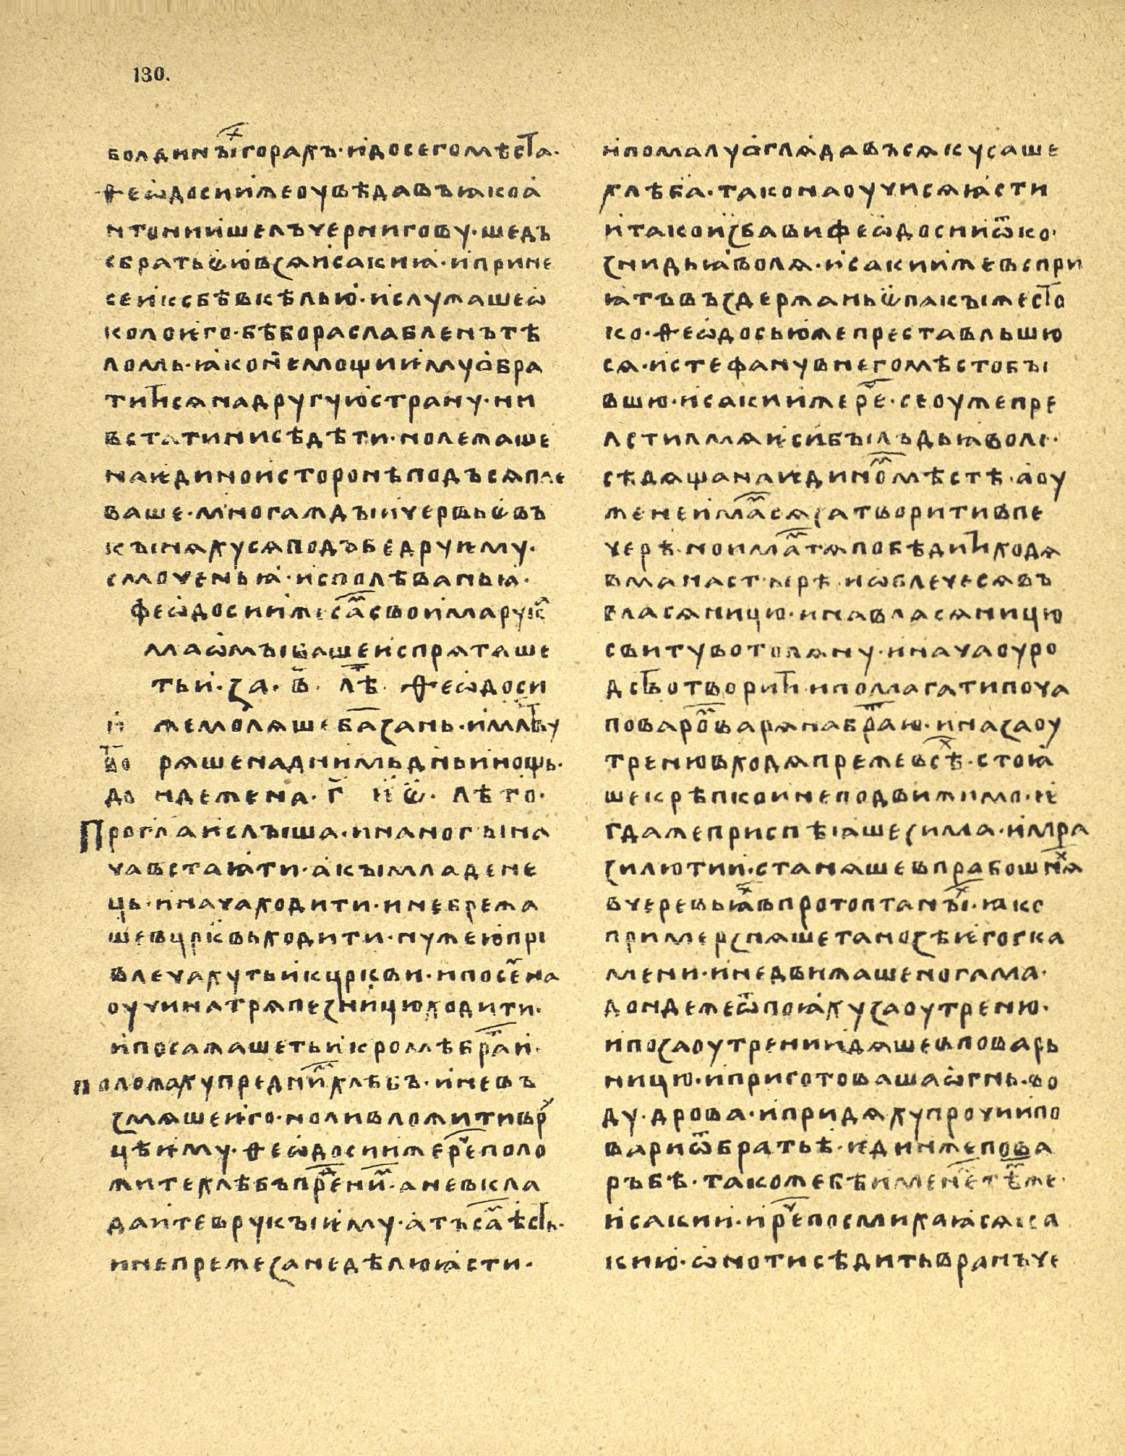 130.
болдины̑горахъ·идосегомѣста·
ѳеѡдосиижеоувѣдавъꙗкоа
нтонийшелъчерниговꙋ·шедъ
сбратьѥювзѧисакиꙗ·иприне
сеиксбѣвкѣлью·ислꙋжашеѡ
колоѥго·бѣбораслабленътѣ
ломь·ꙗконемощииѥмꙋѡбра
титисѧнадрꙋгꙋюстранꙋ·ни
встатинисѣдѣти·нолежаше
наѥдинойсторонѣподъсѧпле
ваше·многаждыичервьѥвъ
кынѧхꙋсѧподъбедрꙋѥмꙋ·
смоченьꙗ·исполѣваньꙗ·
феѡдосиижесамсвоимарꙋк
маѡмывашеиспрѧташе
тьи·за·в҃·лѣт·ѳеѡдоси
и жемолѧшебазань·имлтвꙋ
тво рѧшенаднимьдньинощь·
до ндеженаг҃иѥ·лѣто·
Проглаислыша·инаногына
чавстаꙗти·акымладене
ць·иначаходити·инебрежа
шевцрквьходити·нꙋжеюпри
влечахꙋтьикцркви·ипосемна
оучинатрѧпезницюходити·
ипосажашетьикромѣбраи·
иположахꙋпреднимхлѣбъ·иневъ
змѧшеѥго·ноливложитивръ
цѣѥмꙋ·ѳеѡдосиижереполо
житехлѣбъпреним·аневкла
даитеврꙋкыѥмꙋ·атьсамѣсть·
инепрежезанедѣлюꙗсти·
ипомалꙋѡглѧдавъсѧкꙋсаше
хлѣба·таконаоучисѧꙗсти
итакоизбавифеѡдосииѿко·
знидьꙗволѧ·исакиижевъспри
ꙗтъвъздержаньѥпакыжесто
ко·ѳеѡдосьюжепреставльшю
сѧ·истефанꙋвнегомѣстобы
вшю·исакиижере·сеоужепре
лстилмѧѥсибылъдьꙗволе·
сѣдѧщанаѥдиномѣстѣ·аоу
женеимамсѧзатворитивпе
черѣ·ноимамтѧпобѣдитиходѧ
вманастырѣ·иѡблечесѧвъ
власѧницю·инавласѧницю
свитꙋвотолѧнꙋ·иначаоуро
дствотворити·ипомагатипоча
поваромварѧнабраю·иназаоу
тренювходѧпрежевсѣх·стоꙗ
шекрѣпкоинеподвижимо·ѥ
гдажеприспѣꙗшезима·имра
зилютии·станѧшевпрабошнѧх
вчеревьꙗхвпротоптаны·ꙗко
примерзнѧшетанозѣѥгогка
мени·инедвижашеногама·
дондежеѿпоꙗхꙋзаоутреню·
ипозаоутренииидѧшевповарь
ницю·иприготовашаѡгнь·во
дꙋ·дрова·ипридѧхꙋпрочиипо
вариѿбратьѣ·ѥдинжепова
ръбѣ·такожебѣименемтѣмже·
исакии·иреносмихаꙗсѧиса
кию·ѡнотисѣдитьвранъче